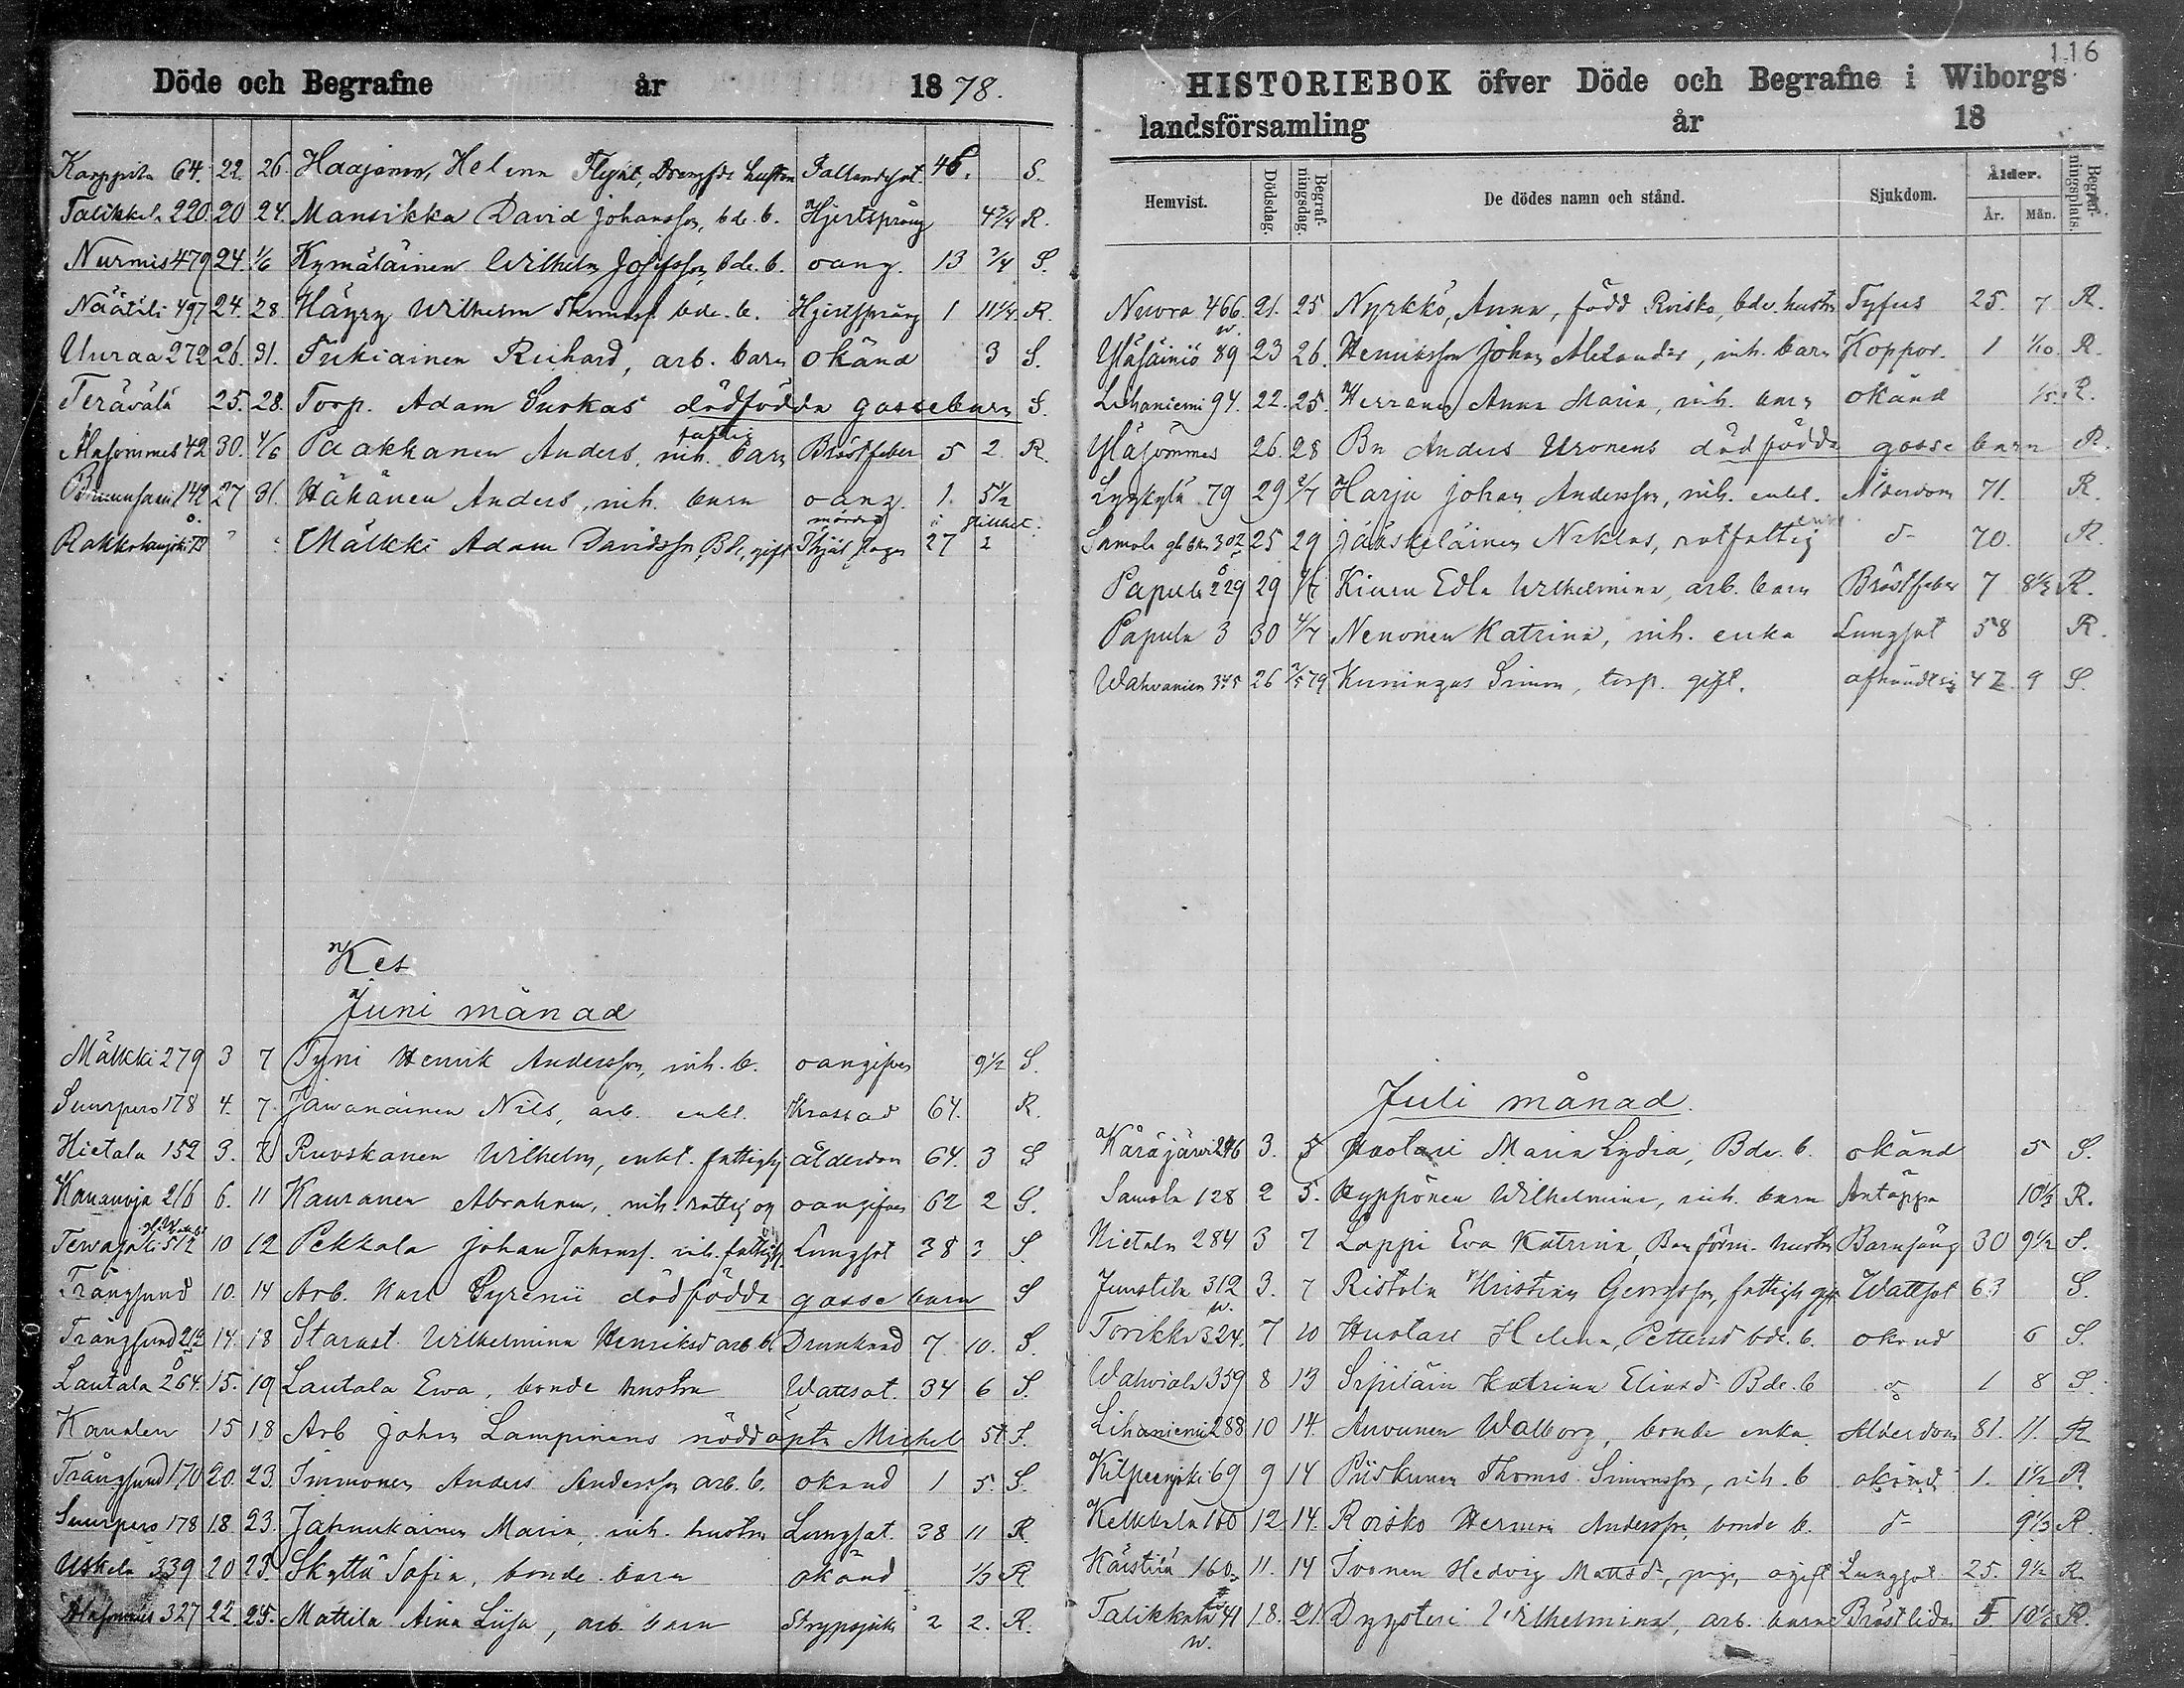 Döde och Begrafne år 1878.
Karppila 64. 22. 26. Haajanen, Helena Flygt, Drengsde hustru Fallandsot. 46. S.
Talikkala 220. 20 24. Mansikka David Johansson, bde. b. Hjertsprång 4 3/4 R.
Nurmis 479 24. 1/6 Kymäläinen Wilhelm Josefsson, bde. b. oang. 13 3/4 S.
Näätälä 497 24. 28. Häyry Wilhelm Thomass. bde. b. Hjertsprång 1 11 1/4. R.
Uuraa 272 26. 31. Tukiainen Richard, arb. barn okänd 3 S.
Terävälä 25. 28. Torp. Adam Suokas dödfödda gossebarn S.
Alasommes 42 30. 4/6 Paakkanen Anders, inh. barn Bröstfeber 5 2. R.
142 27 31. Hähänen Anders, inh. barn oang. 1. 5 1/2
mördad
73 " " Mälkki Adam Davidsson, Bde, gift 27 2
Kes
Juni månad
Mälkki 279 3 7 Tyni Henrik Andersson, inh. b. oangifven 9 1/2 S.
Suurpero 178 4. 7. Jawanainen Nils, arb. enkl. Krassad 64. R.
Hietala 152 3. 7 Ruoskanen Wilhelm, enkl. fattighj ålderdom 64. 3 S
Kananoja 216 6. 11 Kauranen Abraham, inh. oangifven 62 2 S.
Terwajoki 512 10 12 Pekkala Johan Johanss. inh. fattigh. Lungsot 38 3 S.
Trångsund 10. 14 Arb. Karl Gyrenii dödfödda gosse barn S
Trångsund 213 14. 18 Starast Wilhelmina Henriksd arb. b. Drunknad 7. 10. S.
Lautala 264. 15. 19 Lautala Ewa, bonde hustru Wattsot. 34 6 S.
Kanalen 15 18 Arb Johan Lampinens nöddöpta Michel 5t. S.
Trångsund 170 20. 23. Immonen Anders Andersson arb. b. okänd 1 5. S.
Suurpero 178 18. 23. Jahnukainen Maria, inh. hustru Lungsot. 38 11 R.
Uskela 339 20 23. Skyttä Sofia, bonde barn okänd 1/3 R.
Alasommes 327 22. 25. Mattila Aina Liisa, arb. barn Strypsjuka 2 2. R.
116
HISTORIEBOK öfver Döde och Begrafne i Wiborgs
landsförsamling år 18
Hemvist. Dödsdag. Begrafningsdag. De dödes namn och stånd. Sjukdom. Ålder. År. Mån. Begrafningsplats
Nuora 466. 21. 25 Nyrkkö, Anna, född Roisko, bde. hustru Tyfus 25. 7 R.
Yläsäiniö 89 23 26. Henriksson Johan Alexander, inh. barn Koppor. 1 1/10. R.
Lihaniemi 94. 22. 25. Herranen Anna Maria, inh. barn okänd 1/5. R.
Yläsommes 26. 28 Bn Anders Uronens dödfödda gosse barn R.
Lyykylä 79 29 2/7 Harju Johan Andersson, inh. enkl. Ålderdom 71. R.
Samola gl. bkr 302 25 29 Jääskeläinen Niklas, rotfattig d- 70. R.
Papula 229 29 Kiuru Edla Wilhelmina, arb. barn Bröstfeber 7 8 1/2 R.
Papula 3 30 4/7 Nenonen Katrina, inh. enka Lungsot 58 R.
Wahvaniem 345 26 2/5 79 Kuningas Simon, torp. gift. afhändt sig 47. 9 S.
Juli månad.
Käräjärvi 246 3. 5 Huolari Maria Lydia, Bde. b. okänd 5 S.
Samola 128 2 5. Kyppönen Wilhelmina, inh. barn Antäppa 10 1/3 R.
Hietala 284 3 7 Lappi Eva Katrina, Bonförm. hustru Barnsäng 30 9 1/2 S.
Juustila 312 3. 7 Ristola Kristian Georgsson, fattigh. gift Wattsot 63 S.
Torikka 324. 7 10 Huolari Helena, Pettersd bde. b. okänd 6 S.
Wahviala 359 8 13 Sipiläin Katrina Eliasd Bde. b d:o 1 8 S.
Lihaniemi 288 10 14. Auvunen Walborg, bonde enka Ålderdom 81. 11. R
Kilpeenjoki 69 9 14 Piiskunen Thomas Simonsson, inh. b okänd 1. 1 1/2 R
Kelkkala 100 12 14. Roisko Herman Andersson, bonde b. d- 9 1/3 R.
Kärstilä 160 11. 14 Ivonen Hedvig Mattsd, piga, ogift Lungsot 25. 9 1/2 R.
Talikkala 41 18. 21. Dyysteri Wilhelmina, arb. barn Bröstlidan 5. 10 1/2 R.